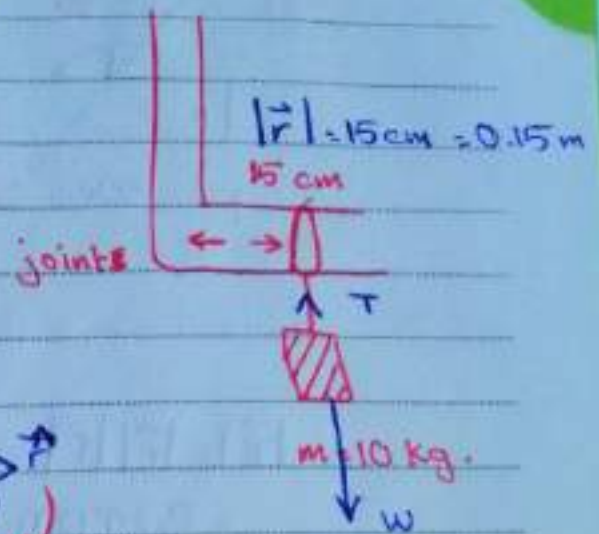 |r⃗| = 15 cm = 0.15 m
15 cm
joints
T
r⃗
m = 10 kg.
)
W